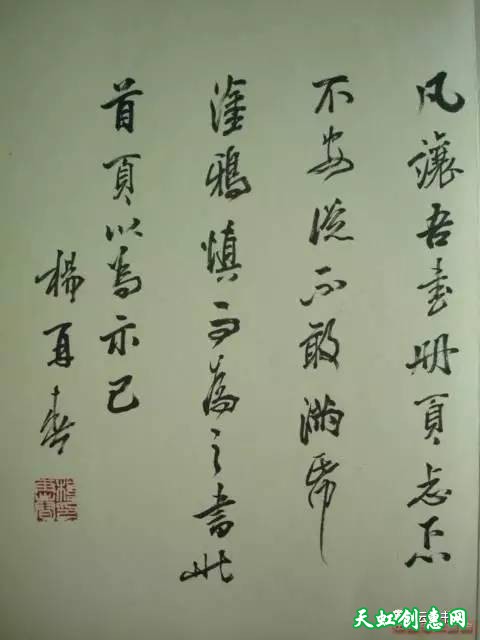 凡讓吾書册頁忐忑
不安從不敢滿帋
塗鴉慎而為之書此
首頁以為示己
楊再春
天虹创意网